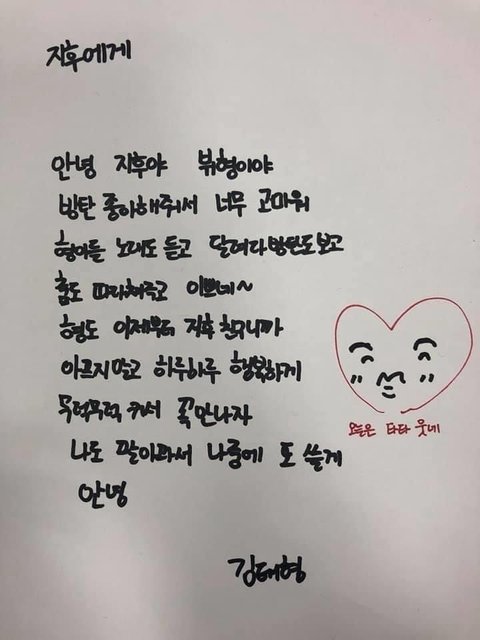 지후에게
안녕 지후야 뷔형이야
방탄 좋아해줘서 너무 고마워
형아들 노래도 듣고 달려라방탄도보고
춤도 따라해주고 이쁘네~
형도 이제부터 지후 친구니까
아프지말고 하루하루 행복하게
무럭무럭 커서 꼭 만나자
나도 팔아파서 나중에 또 쓸게
안녕
김태형
오늘은 타타 웃네